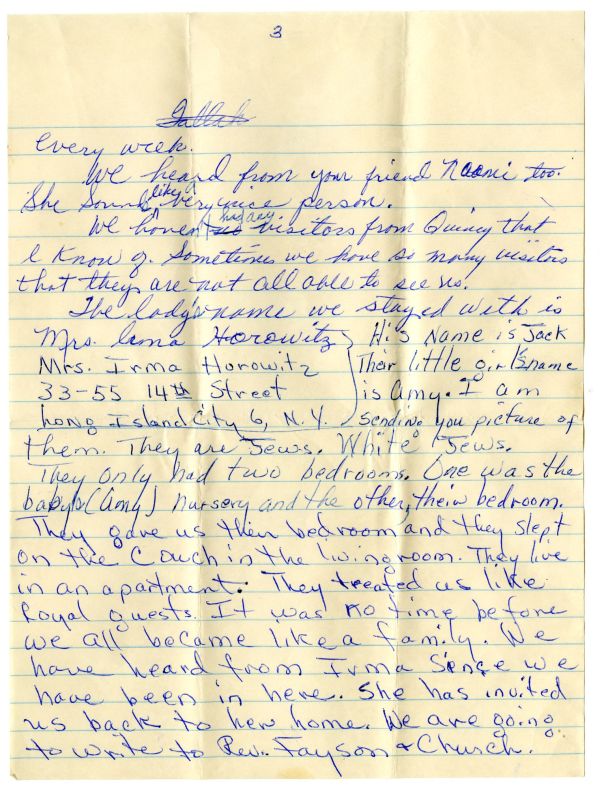 3
Tallah
every week.
We heard from your friend Naomi too.
She sounds like a very nice person.
We haven't had any visitors from Quincy that
I know of. Sometimes we have so many visitors
that they are not all able to see us.
The lady's name we stayed with is
Mrs. Irma Horowitz } His Name is Jack
Mrs. Irma Horowitz Their little girl's name
33-55 14th Street is Amy. I am
Long Island City 6, N.Y. sending you picture of
them. They are Jews. White Jews.
They only had two bedrooms. One was the
baby's (Amy) nursery and the other, their bedroom.
They gave us their bedroom and they slept
on the couch in the livingroom. They live
in an apartment. They treated us like
Royal guests. It was no time before
we all became like a family. We
have heard from Irma Since we
have been in here. She has invited
us back to her home. We are going
to write to Rev. Fayson & Church.